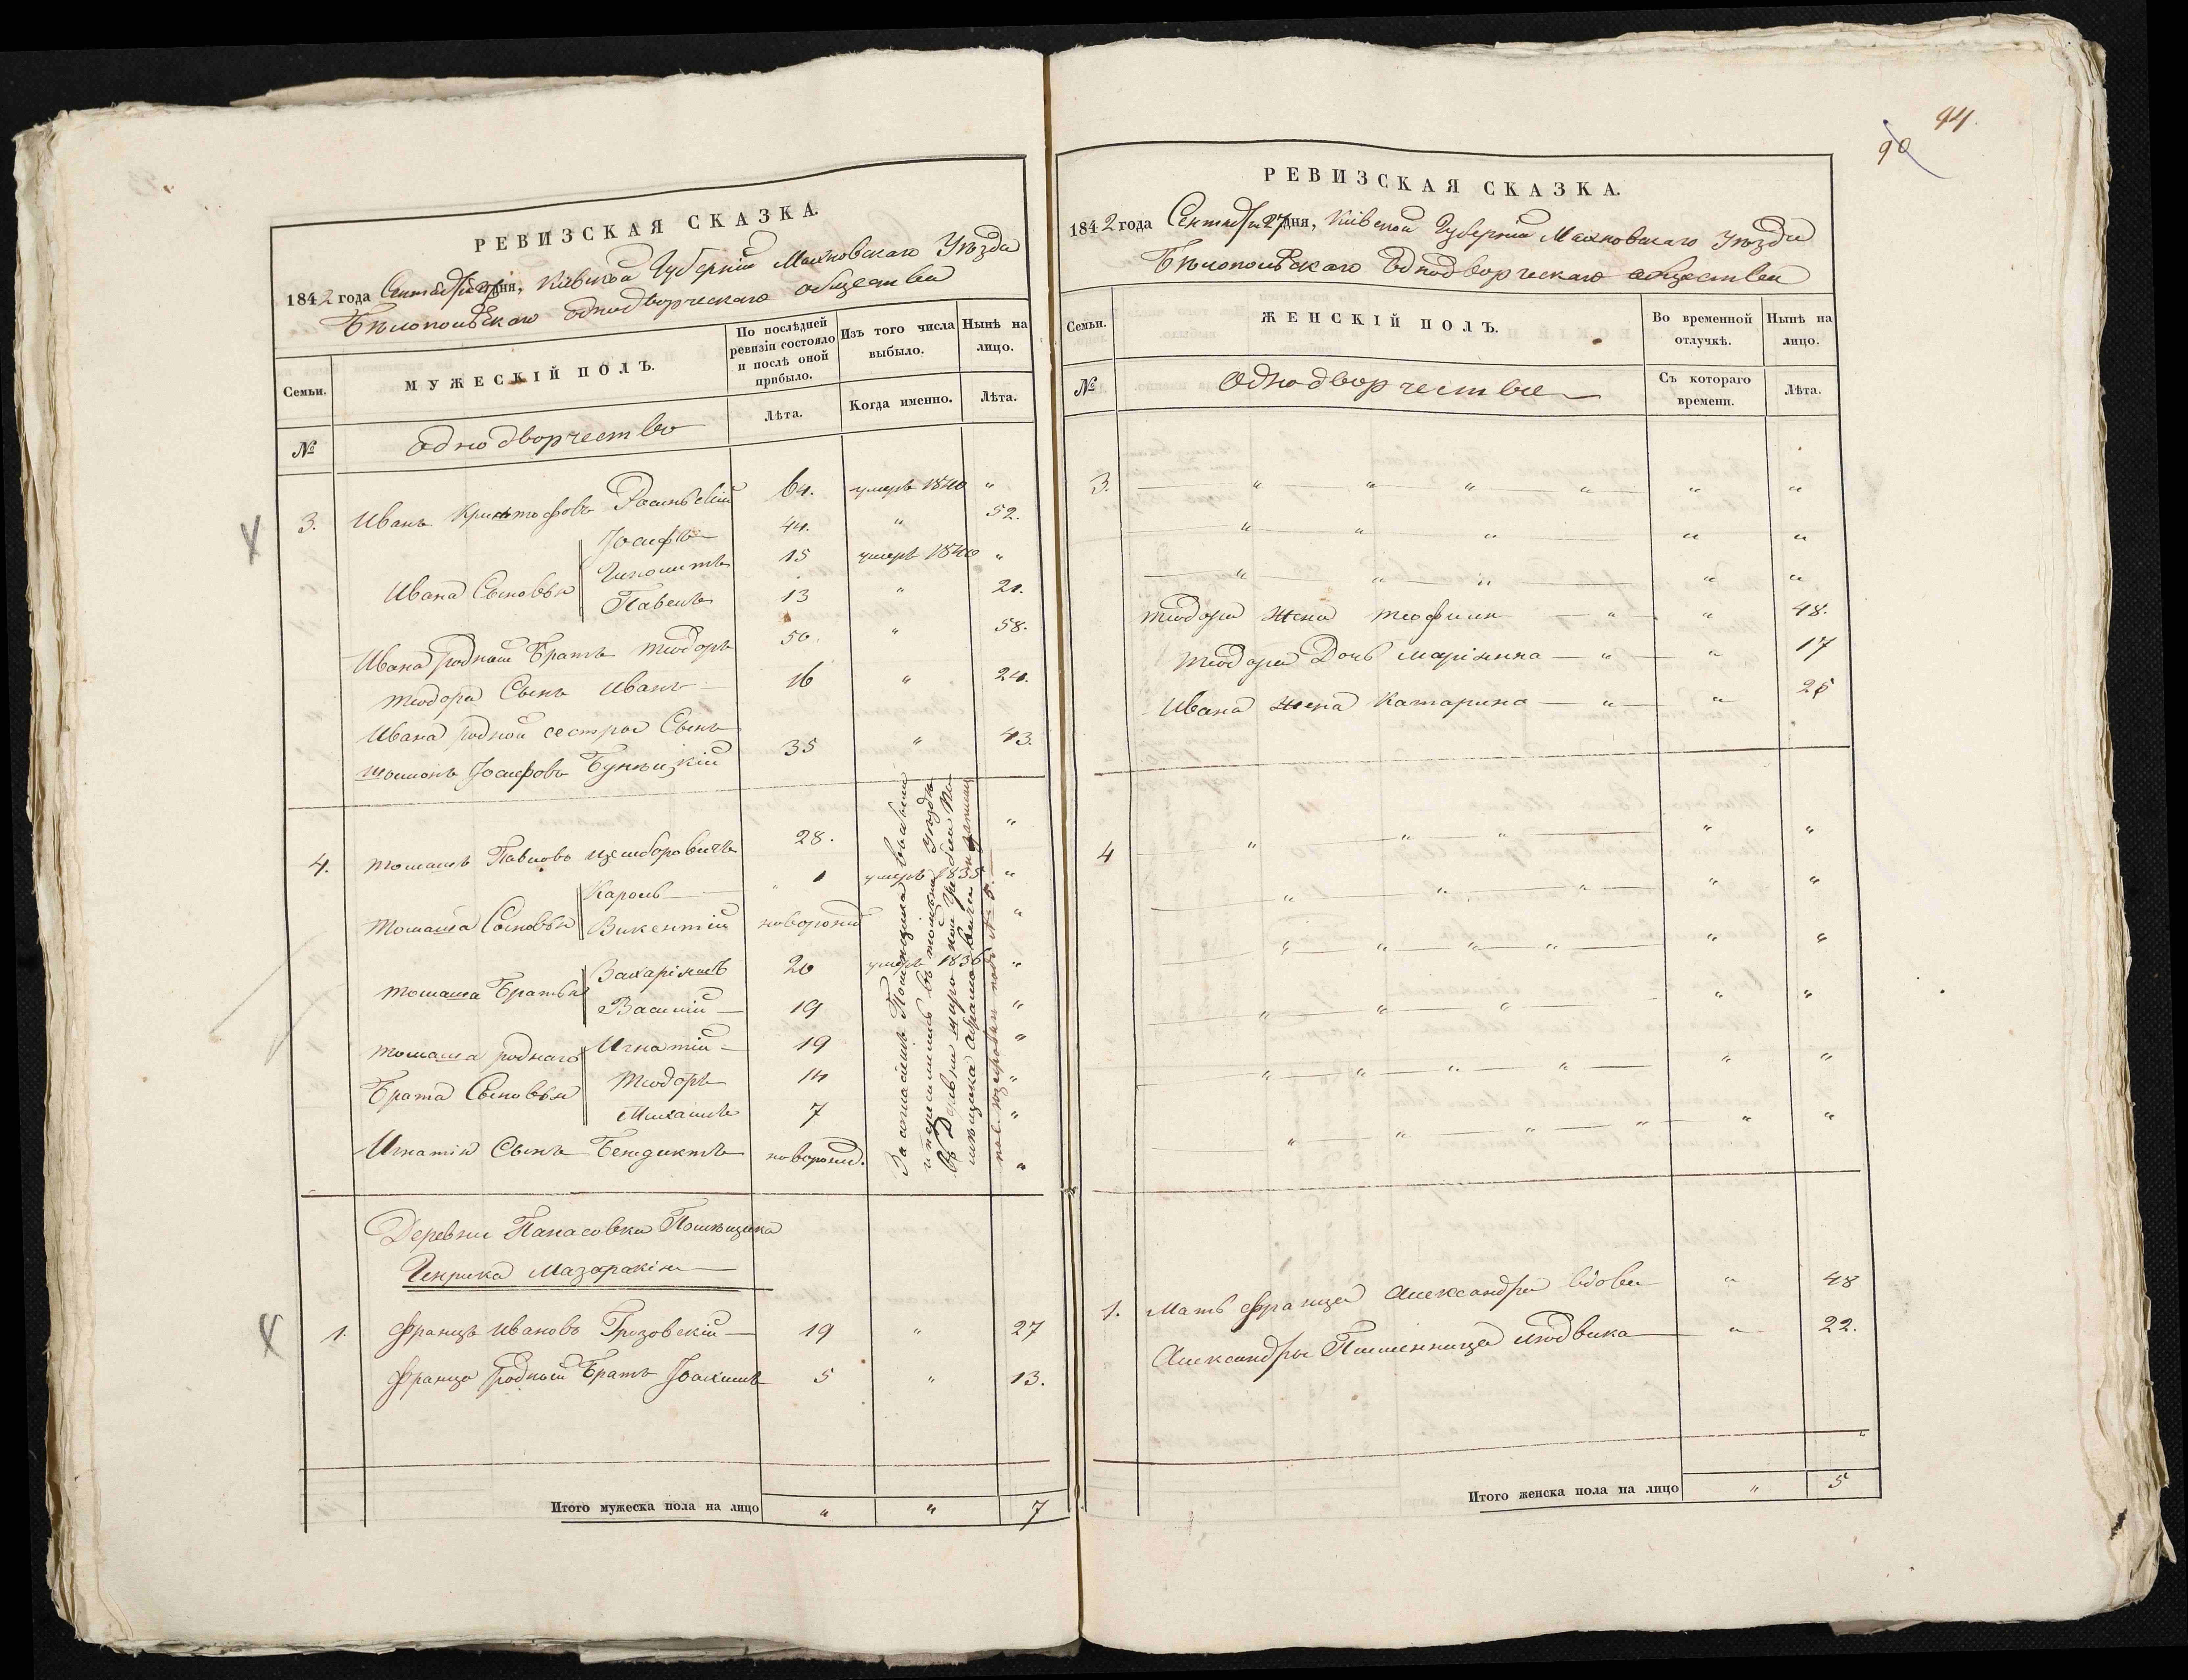 РЕВИЗСКАЯ СКАЗКА.
1842 года Сентября 27 дня, Кіевской Губерніи Махновскаго Уѣзда
Бѣлопольскаго однодворческаго общества
Семьи.
МУЖЕСКІЙ ПОЛЪ.
По послѣдней ревизіи состояло и послѣ оной прибыло.
Изъ того числа выбыло.
Нынѣ на лицо.
№
однодворчество
Лѣта.
Когда именно.
Лѣта.
3. Иванъ Криштофовъ 64. умеръ 1840 "
Іосифъ 44. " 52.
Ивана Сыновья Ипполитъ 15 умеръ 1840 "
Павелъ 13 " 21.
Ивана родный Братъ Теодоръ 50. " 58.
Теодора Сынъ Иванъ 16 " 24.
Ивана родной сестры Сынъ
Іосифовъ 35 " 43.
4. Томашъ Павловъ 28. "
Кароль 1 умеръ 1835 "
Томаша Сыновья Викентій новорожд "
Томаша Братья Захаріашъ 20 умеръ 1836 "
Василій 19 "
Томаша роднаго Игнатій 19 "
Брата Сыновья Теодоръ 14 "
Михаилъ 7 "
Игнатія Сынъ Бенедиктъ новорожд. "
За согласіемъ Помѣщика выбыли
и переселились въ томъ же Уѣздѣ
въ Деревни
подъ № 5.
Деревни Панасовки Помѣщика
Генрика Мазаракія
1. Францъ Ивановъ Грозовскій 19 " 27
Франца родный Братъ Іоакимъ 5 " 13.
Итого мужеска пола на лицо " " 7
94.
90
РЕВИЗСКАЯ СКАЗКА.
1842 года Сентября 27 дня, Кіевской Губерніи Махновскаго Уѣзда
Бѣлопольскаго Однодворческаго общества
Семьи.
ЖЕНСКІЙ ПОЛЪ.
Во временной отлучкѣ.
Нынѣ на лицо.
№
Однодворчество
Съ котораго времени.
Лѣта.
3. " " " " "
" " " " "
" " " " "
Теодора Жена Теофила " " 48.
Теодора Дочь Маріянна " " 17
Ивана жена Катарина " " 25
4 " " " " "
" " " " "
" " " " " "
" " " " "
" " " " " "
" " " " " "
1. Мать Франца Александра вдова " 48
Александры Племенница Людвика " 22.
Итого женска пола на лицо " 5